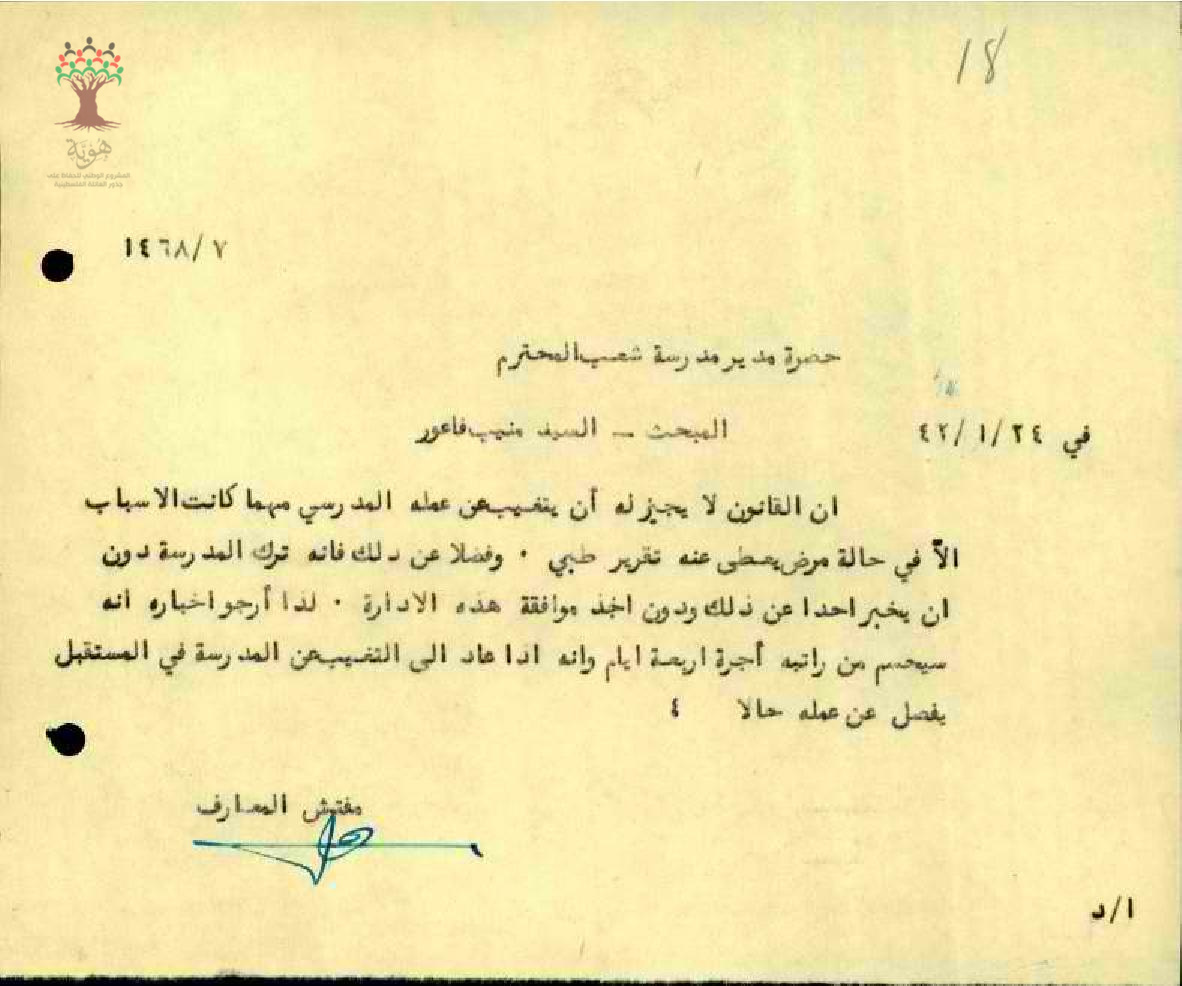 18
هُوِيَّة
المشروع الوطني للحفاظ على
جذور العائلة الفلسطينية
١٤٦٨/٧
حضرة مدير مدرسة شعب المحترم
في ٤٢/١/٢٤
المبحث – السيد منيب فاعور
ان القانون لا يجيز له أن يتغيب عن عمله المدرسي مهما كانت الاسباب
الاّ في حالة مرض يعطى عنه تقرير طبي ٠ وفضلا عن ذلك فانه ترك المدرسة دون
ان يخبر احدا عن ذلك ودون اخذ موافقة هذه الادارة ٠ لذا أرجو اخباره انه
سيحسم من راتبه أجرة اربعة ايام وانه اذا عاد الى التغيب عن المدرسة في المستقبل
يفصل عن عمله حالا ٤
مفتش المعارف
ا/د